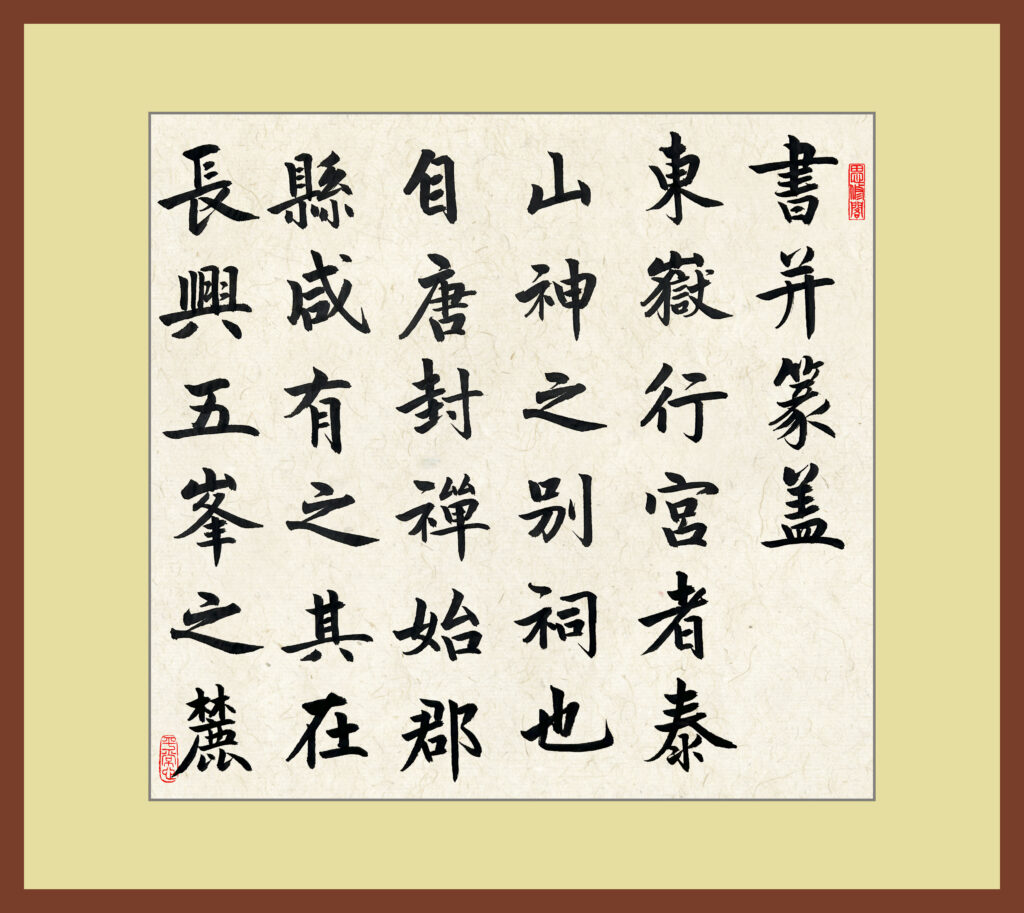 書并篆盖
東嶽行宮者泰
山神之别祠也
自唐封禪始郡
縣咸有之其在
長興五峯之麓
思修閣
平常心